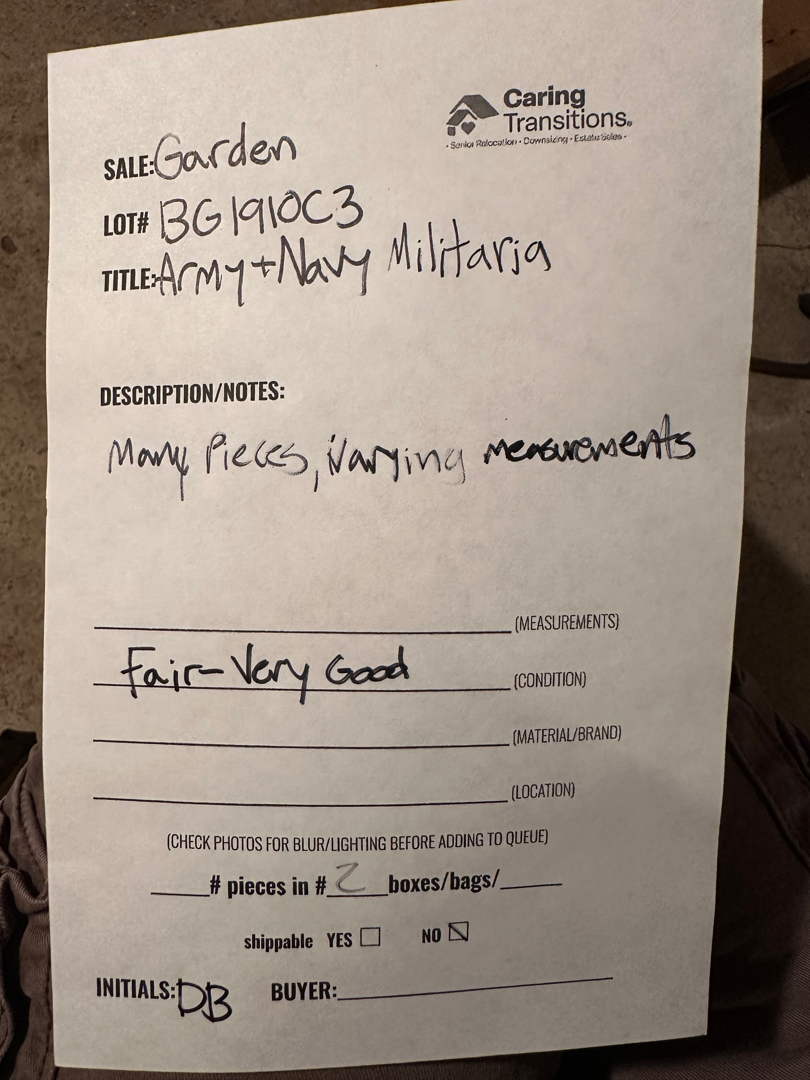 Caring
Transitions®
• Senior Relocation • Downsizing • Estate Sales •
SALE: Garden
LOT# BG1910C3
TITLE: Army + Navy Militaria
DESCRIPTION/NOTES:
Many Pieces, Varying measurements
(MEASUREMENTS)
Fair-Very Good (CONDITION)
(MATERIAL/BRAND)
(LOCATION)
(CHECK PHOTOS FOR BLUR/LIGHTING BEFORE ADDING TO QUEUE)
____# pieces in #2 boxes/bags/____
shippable YES ☐ NO ☒
INITIALS: DB BUYER:____